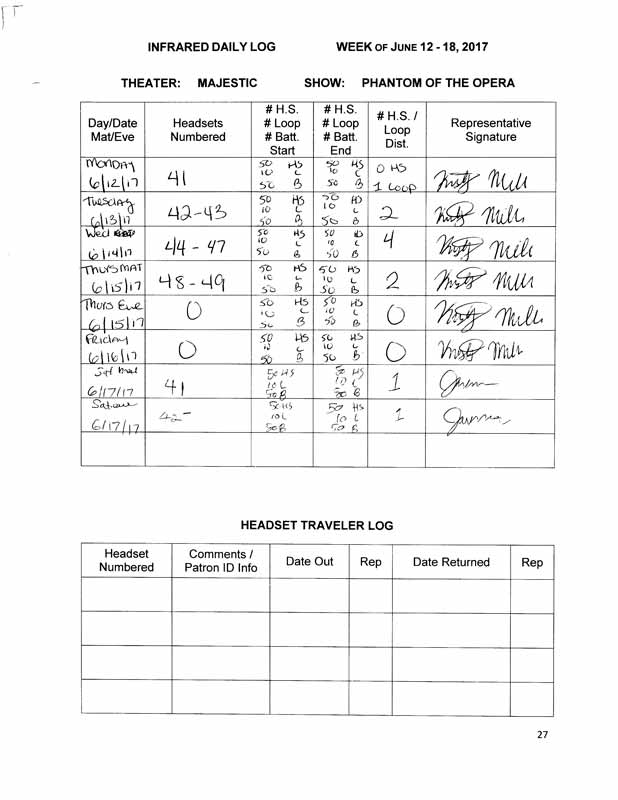 INFRARED DAILY LOG WEEK OF JUNE 12 - 18, 2017
THEATER: MAJESTIC SHOW: PHANTOM OF THE OPERA
Day/Date Mat/Eve Headsets Numbered # H.S. # Loop # Batt. Start # H.S. # Loop # Batt. End # H.S. / Loop Dist. Representative Signature
MONDAY 6/12/17 41 50 HS 10 L 50 B 50 HS 10 L 50 B 0 HS 1 LOOP
Tuesday 6/13/17 42-43 50 HS 10 L 50 B 50 HS 10 L 50 B 2
Wed 6/14/17 44-47 50 HS 10 L 50 B 50 HS 10 L 50 B 4
Thurs MAT 6/15/17 48-49 50 HS 10 L 50 B 50 HS 10 L 50 B 2
Thurs Eve 6/15/17 0 50 HS 10 L 50 B 50 HS 10 L 50 B 0
Friday 6/16/17 0 50 HS 10 L 50 B 50 HS 10 L 50 B 0
Sat Mat 6/17/17 41 50 HS 10 L 50 B 50 HS 10 L 50 B 1
Sat eve 6/17/17 42- 50 HS 10 L 50 B 50 HS 10 L 50 B 1
HEADSET TRAVELER LOG
Headset Numbered Comments / Patron ID Info Date Out Rep Date Returned Rep
27